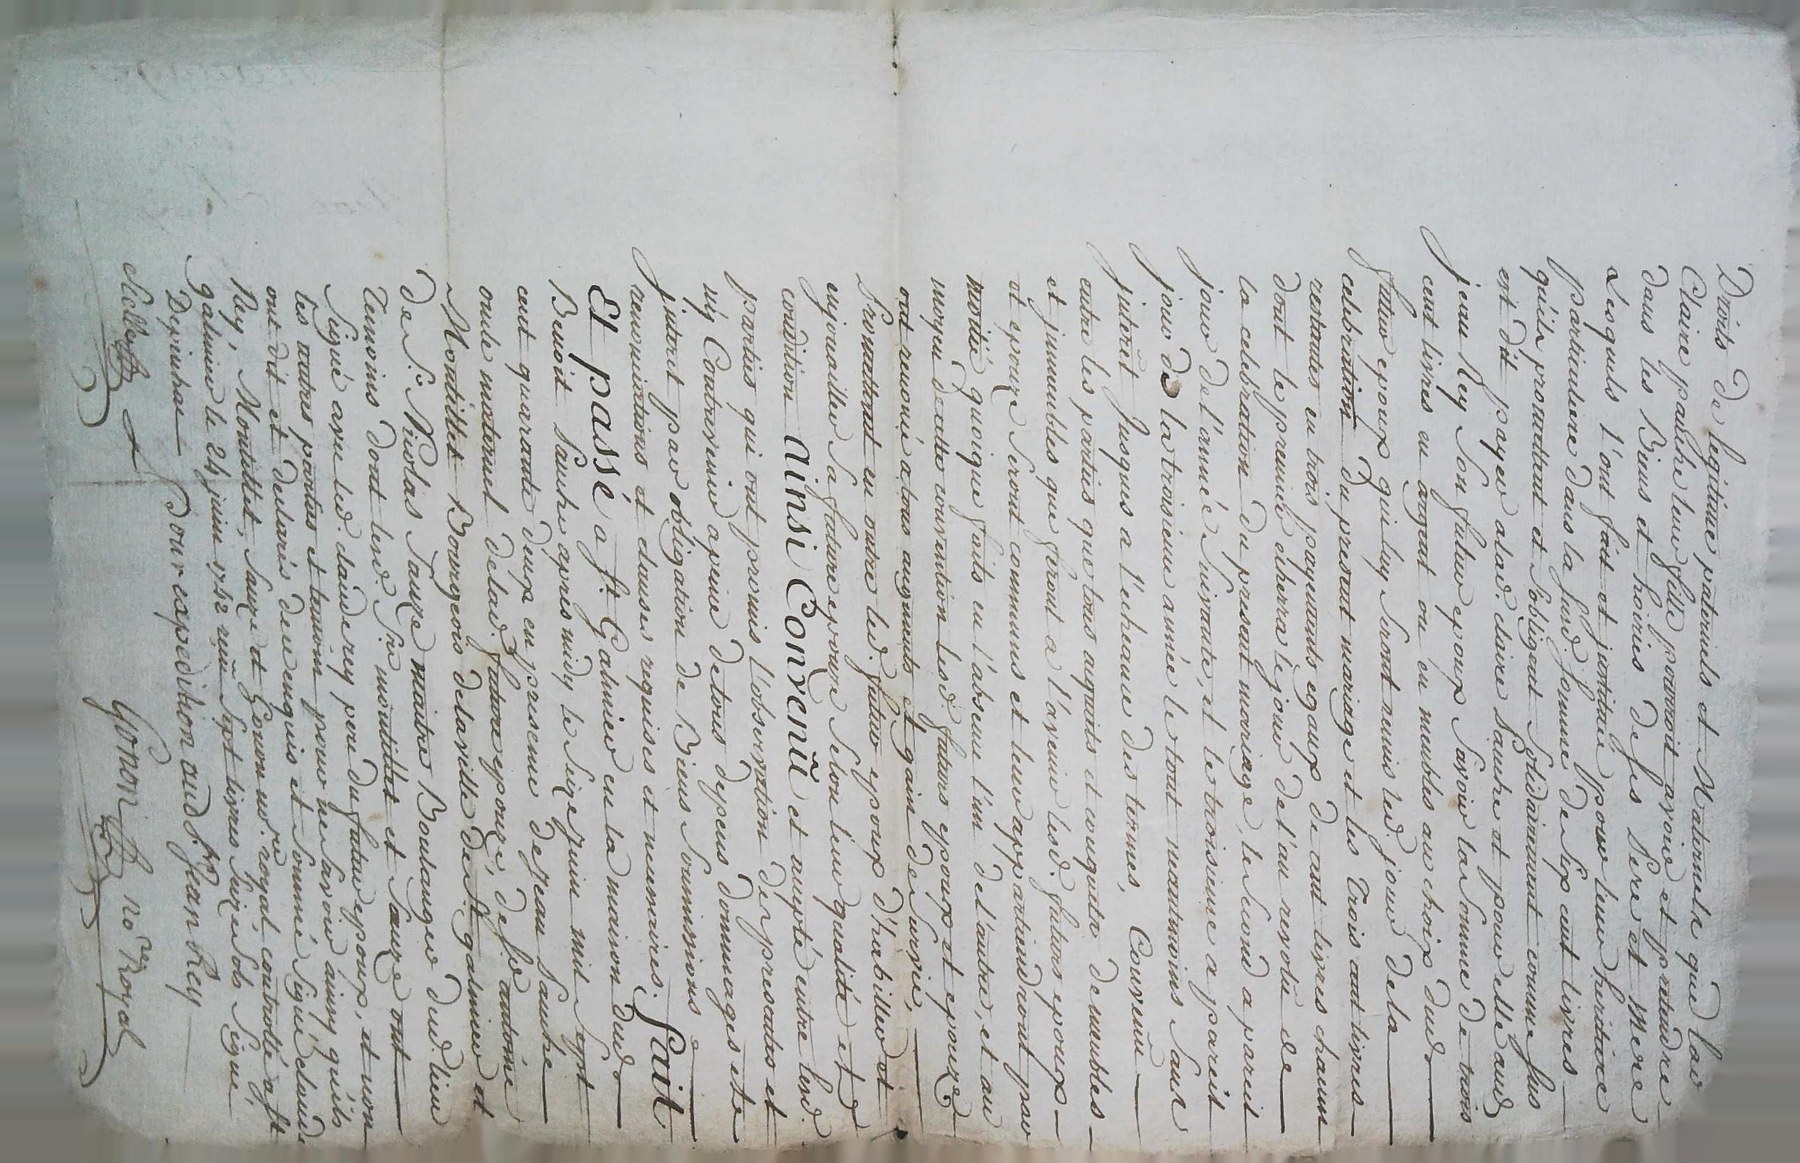 Droits de legitime paternels et Maternels que lad
Claire pauche leur fille pouvoit avoir et pretendre
dans les Biens et hoiries de ses Pere et Mere
Lesquels l'ont fait et instituée pour leur heritiere
particuliere dans la susd. somme de six cent livres
qu'ils promettent et s'obligent solidairement comme sus
est dit payer a lad. claire Pauche et pour elle aud
jean Rey son futur epoux Savoir la somme de trois
cent livres en argent ou en meubles au choix dud
futur epoux qui luy seront remis led. jour de la
celebration du present mariage et les Trois cent livres
restantes en trois payements egaux de cent livres chacun
dont le premier echerra le jour de l'an revolu de
la celebration du present mariage, le second a pareil
jour de l'année suivante, et le troisieme a pareil
jour de la troisieme année le tout neantmoins sans
jnterêt jusques a l'echeance des termes, Convenû
entre les parties que tous acquets et conquets de meubles
et jmmeubles que feront a l'avenir lesd. futurs epoux
et epouze seront communs et leur appartiendront par
moitié quoique faits en l'absence l'un de l'autre, et au
moyen de cette convention lesd futurs epoux et epouze
ont renoncé a tous augments et gains de survie,
Promettant en outre led. futur epoux d'habiller et
enjoailler sa future epouze selon leur qualité et
condition ainsi Convenû et accepté entre lesd.
parties qui ont promis l'observation des presentes et
n'y Contrevenir a peine de tous depens dommages et
jnterets par obligation de Biens soumissions
renonciations et clauses requises et necessaires. Fait
Et passé a st. Galmier en la maison dud
Benoit Pauche apres midy le seize juin mil sept
cent quarante deux en presence de jean Pauche
oncle maternel de lad. future epouze, de sr. antoine
Montillet Bourgeois de la ville de st galmier et
de sr. Nicolas Sauze maitre Boulanger dud. lieu
Temoins dont lesd. srs montillet et Sauze ont
signé avec led claude rey pere du futur epoux, et non
les autres parties et temoin pour ne savoir áinsy qu'ils
ont dit et declaré de ce enquis et sommé signé, Claude
Rey, Montillet, Sauze et Gonon nore. royal controllé a st
galmier le 24 juin 1742 reçu sept livres seize sols signé
Depinhac
Pour expedition aud. sr. Jean Rey
Gonon no.re Royal